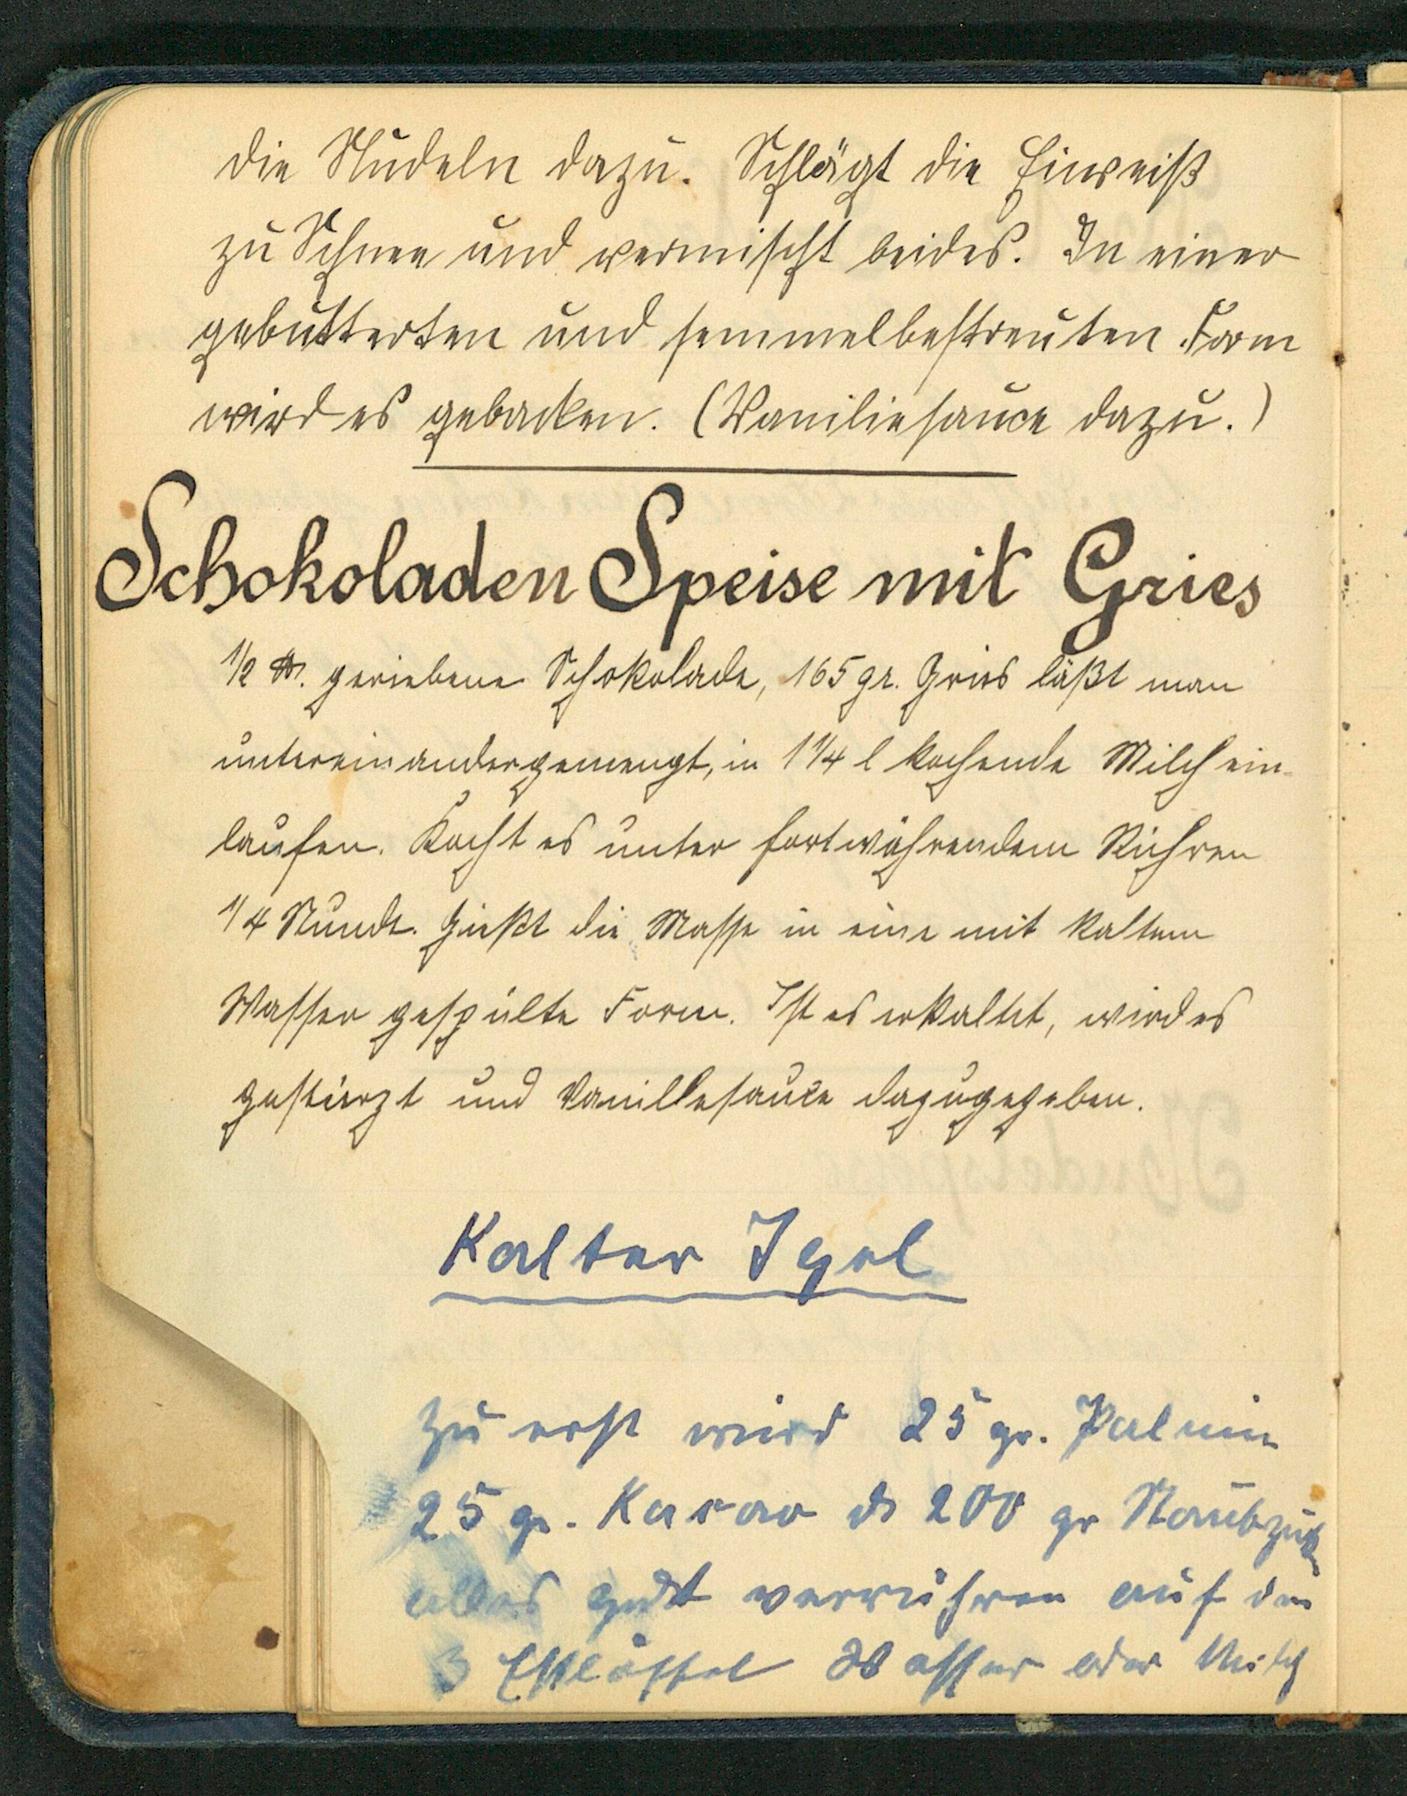 die Nudeln dazu. Schlägt die Eiweiß
zu Schnee und vermischt beides. In einer
gebutterten und semmelbestreuten Form
wird es gebacken. (Vaniliesauce dazu.)
Schokoladen Speise mit Gries
1/2 ℔. geriebene Schokolade, 165 gr. Gries läßt man
untereinandergemengt, in 1 1/4 l kochende Milch ein-
laufen. Kocht es unter fortwährendem Rühren
1/4 Stunde. Gießt die Masse in eine mit kaltem
Wasser gespülte Form. Ist es erkaltet, wird es
gestürzt und Vanillesauce dazugegeben.
Kalter Igel
zu erst wird 25 gr. Palmin
25 gr. Kakao 200 gr Staubzuck
alles gut verrühren auf
3 Eßlöffel Wasser oder Milch